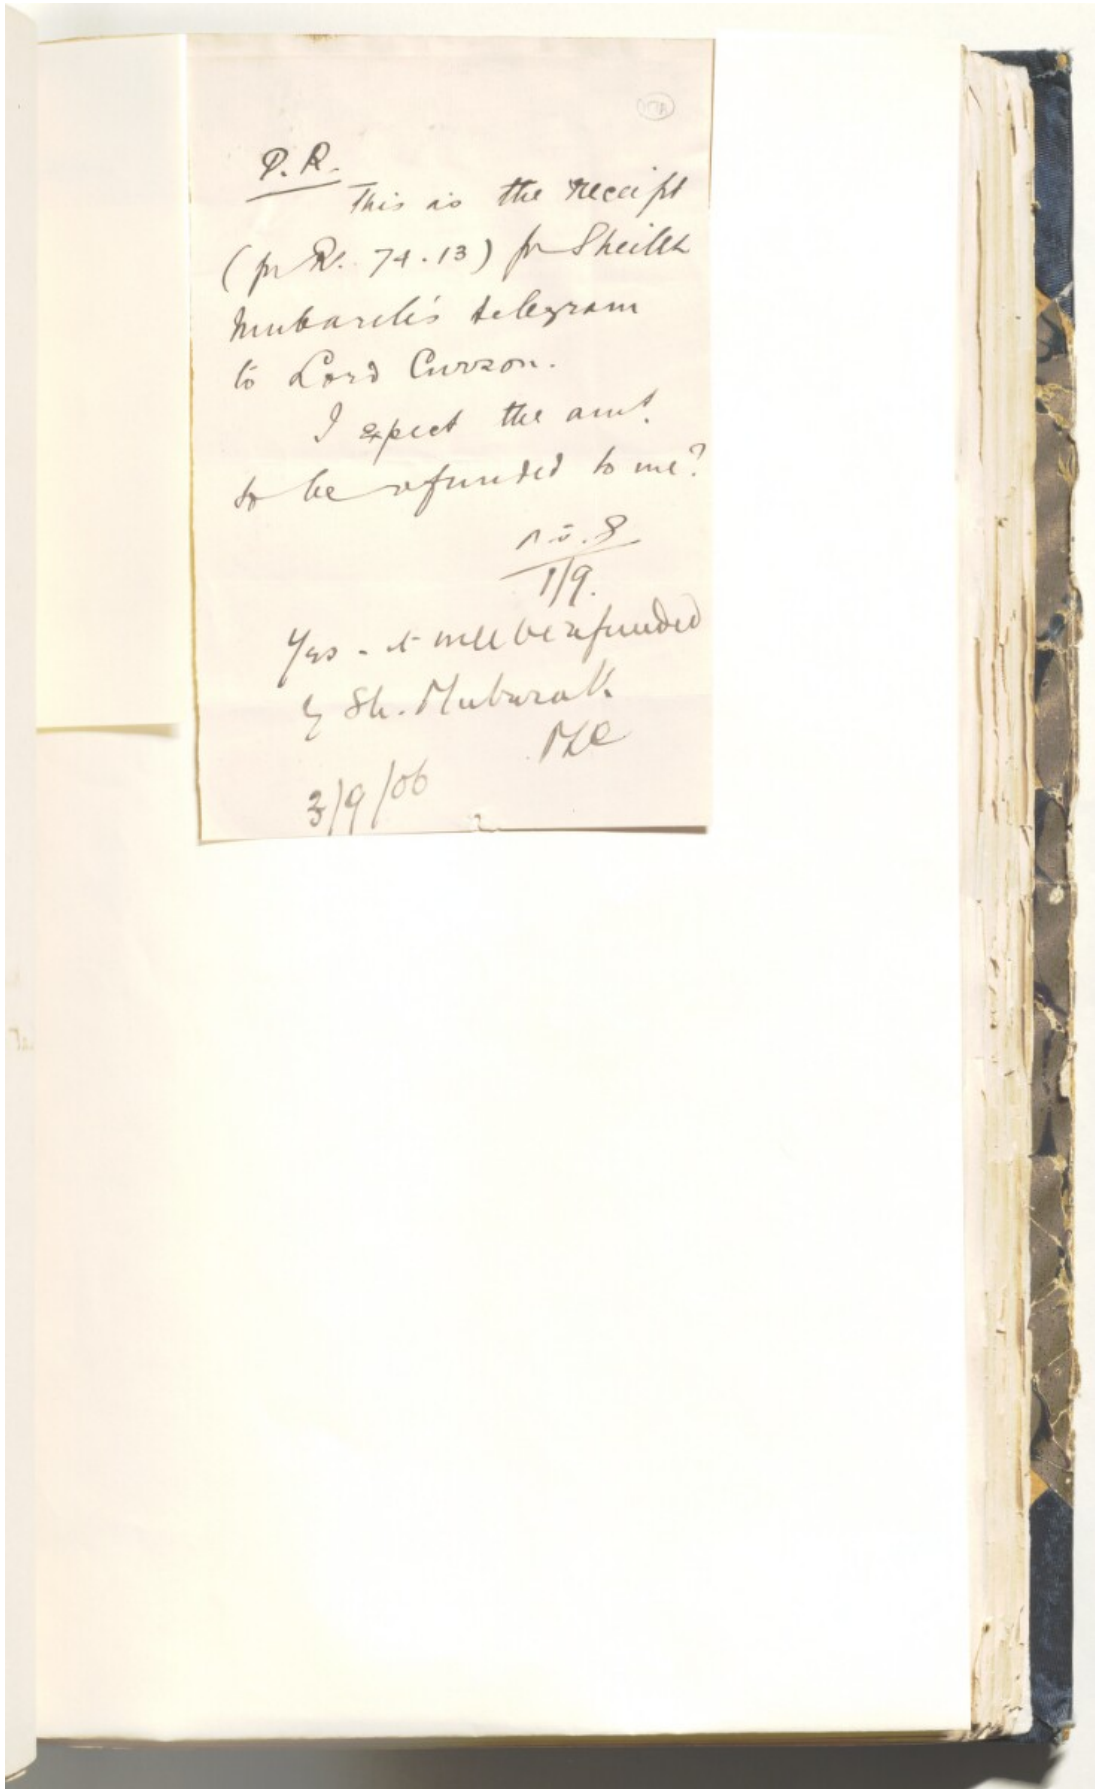 P. R.
This is the receipt
(for Rs. 74.13) for Sheikh
Mubarak's telegram
to Lord Curzon.
I expect the amt.
to be refunded to me?
1/9.
Yes - it will be refunded
by Sh. Mubarak
3/9/06